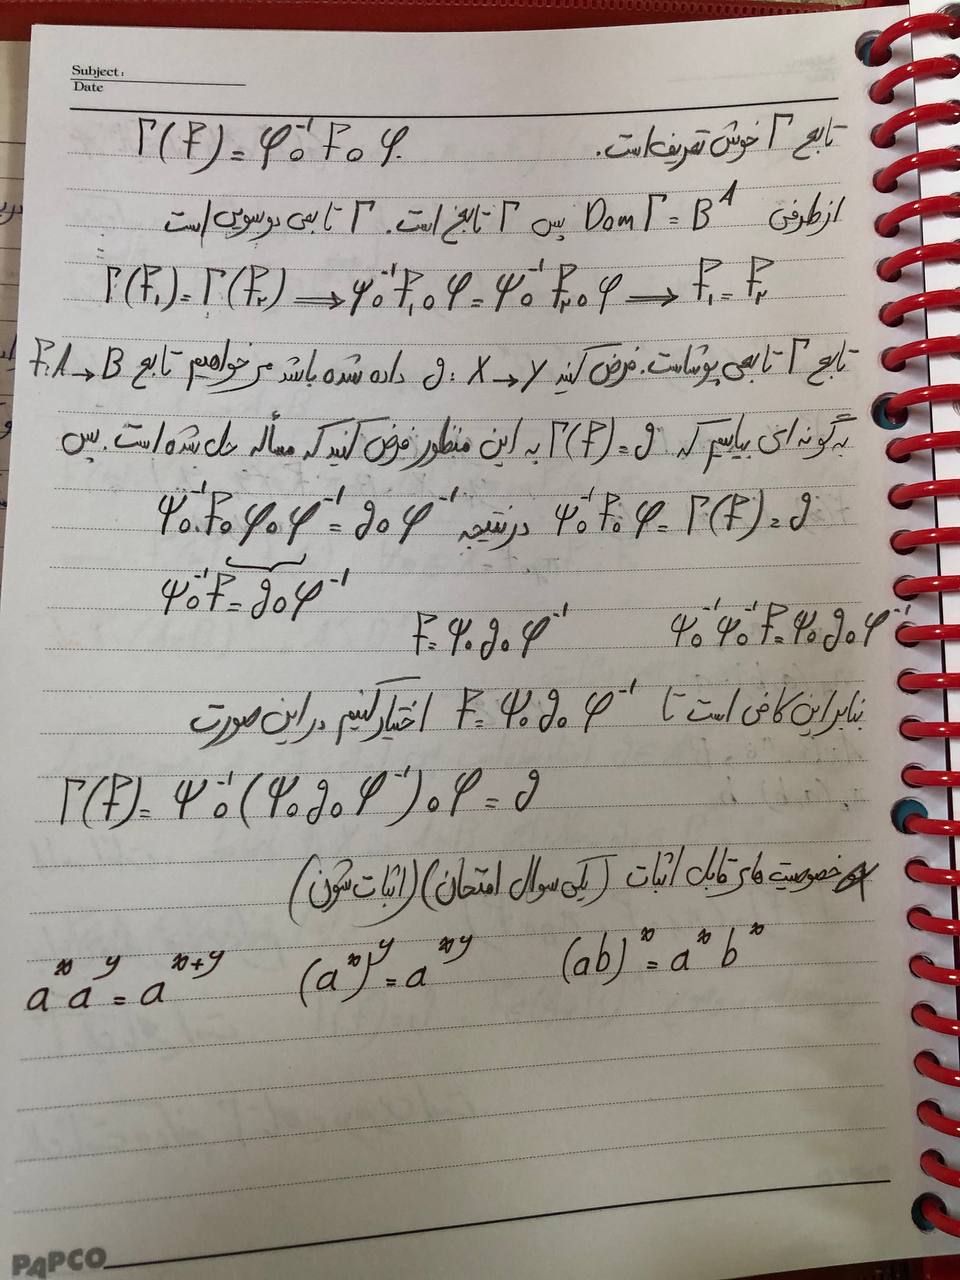 Subject:
Date
تابع Γ خوش تعریف است. Γ(F) = φ⁻¹∘F∘φ.
از طرفی Dom Γ = B^A پس Γ تابع است. Γ تابعی دوسویی است
Γ(F₁) = Γ(F₂) ⟹ ψ⁻¹∘F₁∘φ = ψ⁻¹∘F₂∘φ ⟶ F₁ = F₂
تابع Γ تابعی پوشاست. فرض کنید g: X → Y داده شده باشد می خواهیم تابع F: A → B
به گونه ای بیابیم که Γ(F) = g به این منظور فرض کنید که مسأله حل شده است. پس
ψ⁻¹∘F∘φ = Γ(F) = g در نتیجه ψ⁻¹∘F∘φ∘φ⁻¹ = g∘φ⁻¹
ψ⁻¹∘F = g∘φ⁻¹
ψ∘⁻¹ψ∘⁻¹F = ψ∘g∘φ⁻¹ F = ψ∘g∘φ⁻¹
بنابراین کافی است تا F = ψ∘g∘φ⁻¹ اختیار کنیم در این صورت
Γ(F) = ψ⁻¹∘(ψ∘g∘φ⁻¹)∘φ = g
خصوصیت های قابل اثبات (یکی سوال امتحان) (اثبات شون)
a^x a^y = a^(x+y) (a^x)^y = a^(xy) (ab)^x = a^x b^x
PAPCO